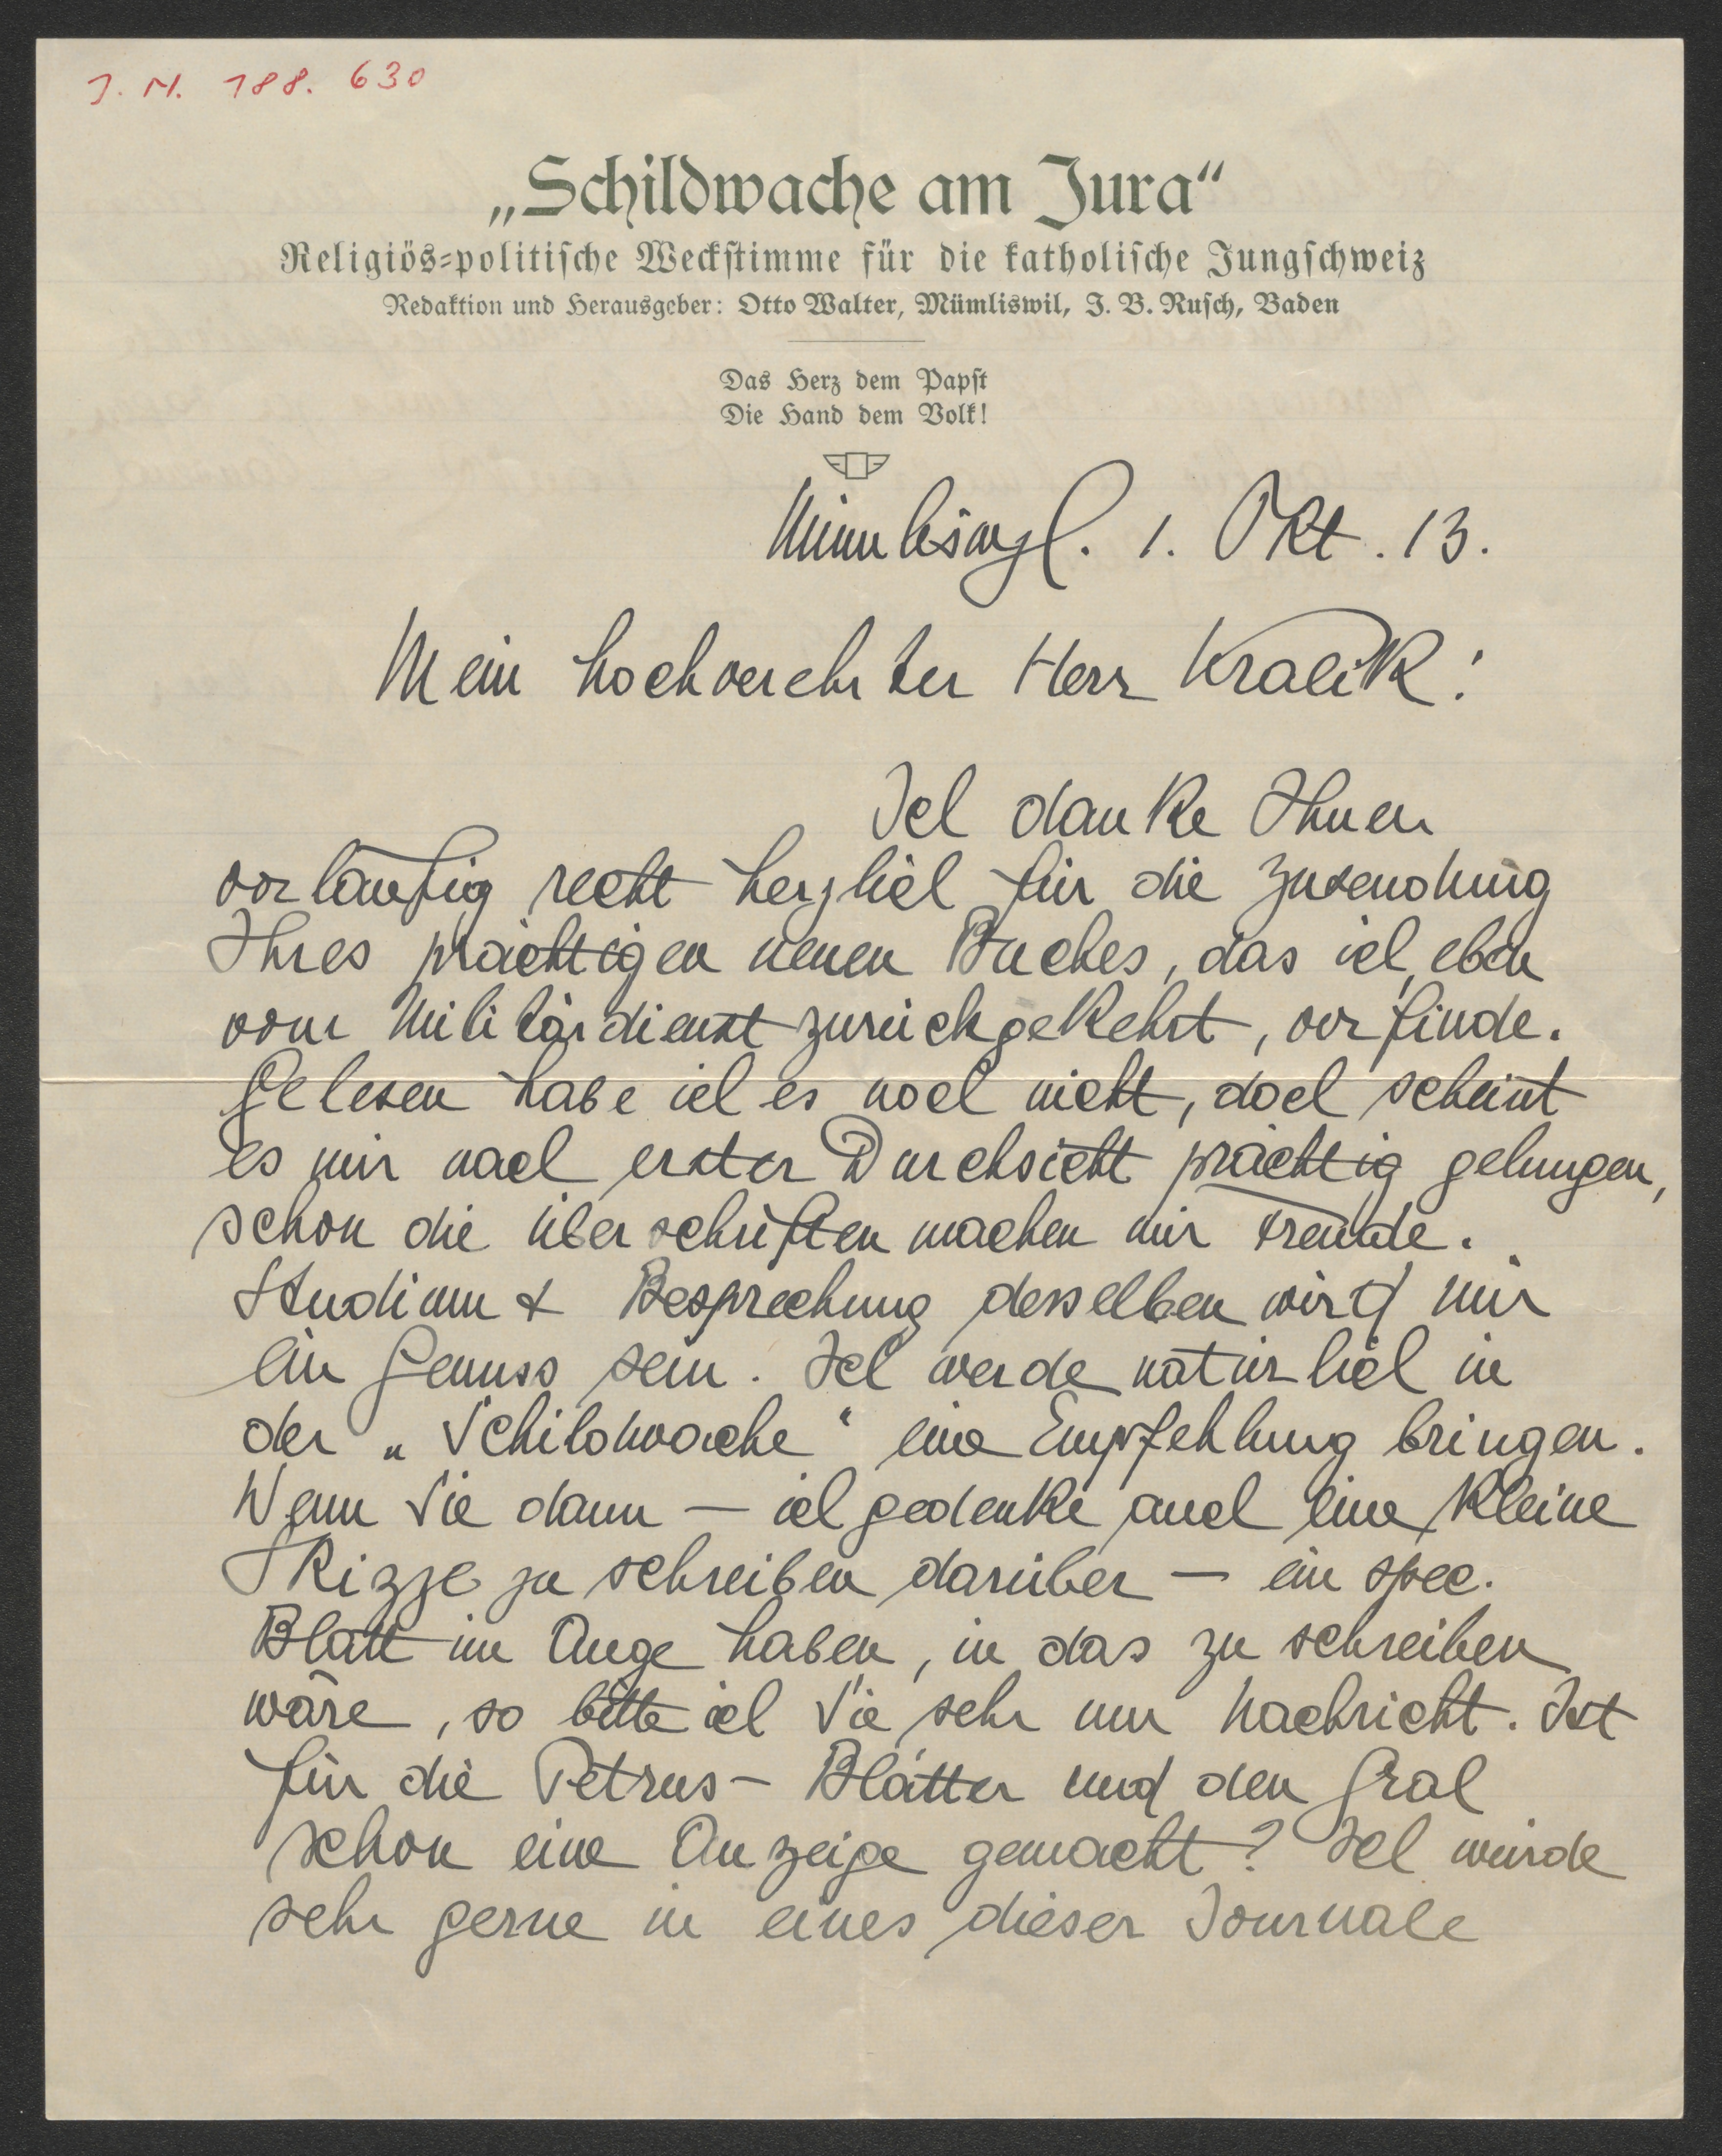 J. N. 188. 630
„Schildwache am Jura“
Religiös-politische Weckstimme für die katholische Jungschweiz
Redaktion und Herausgeber: Otto Walter, Mümliswil, J. B. Rusch, Baden
Das Herz dem Papst
Die Hand dem Volk!
1. Okt. 13.
Mein hochverehrter Herr Kralik!
Ich danke Ihnen
vorläufig recht herzlich für die Zusendung
Ihres prächtigen neuen Buches, das ich, eben
vom Militärdienst zurückgekehrt, vorfinde.
Gelesen habe ich es noch nicht, doch scheint
es mir nach erster Durchsicht prächtig gelungen,
schon die Überschriften machen mir Freude.
Studium & Besprechung desselben wird mir
ein Genuss sein. Ich werde natürlich in
der „Schildwache“ eine Empfehlung bringen.
Wenn Sie dann — ich gedenke auch eine kleine
Skizze zu schreiben darüber — ein spec.
Blatt im Auge haben, in das zu schreiben
wäre, so bitte ich Sie sehr um Nachricht. Ist
für die Petrus-Blätter und den Gral
schon eine Anzeige gemacht? Ich würde
sehr gerne in eines dieser Journale